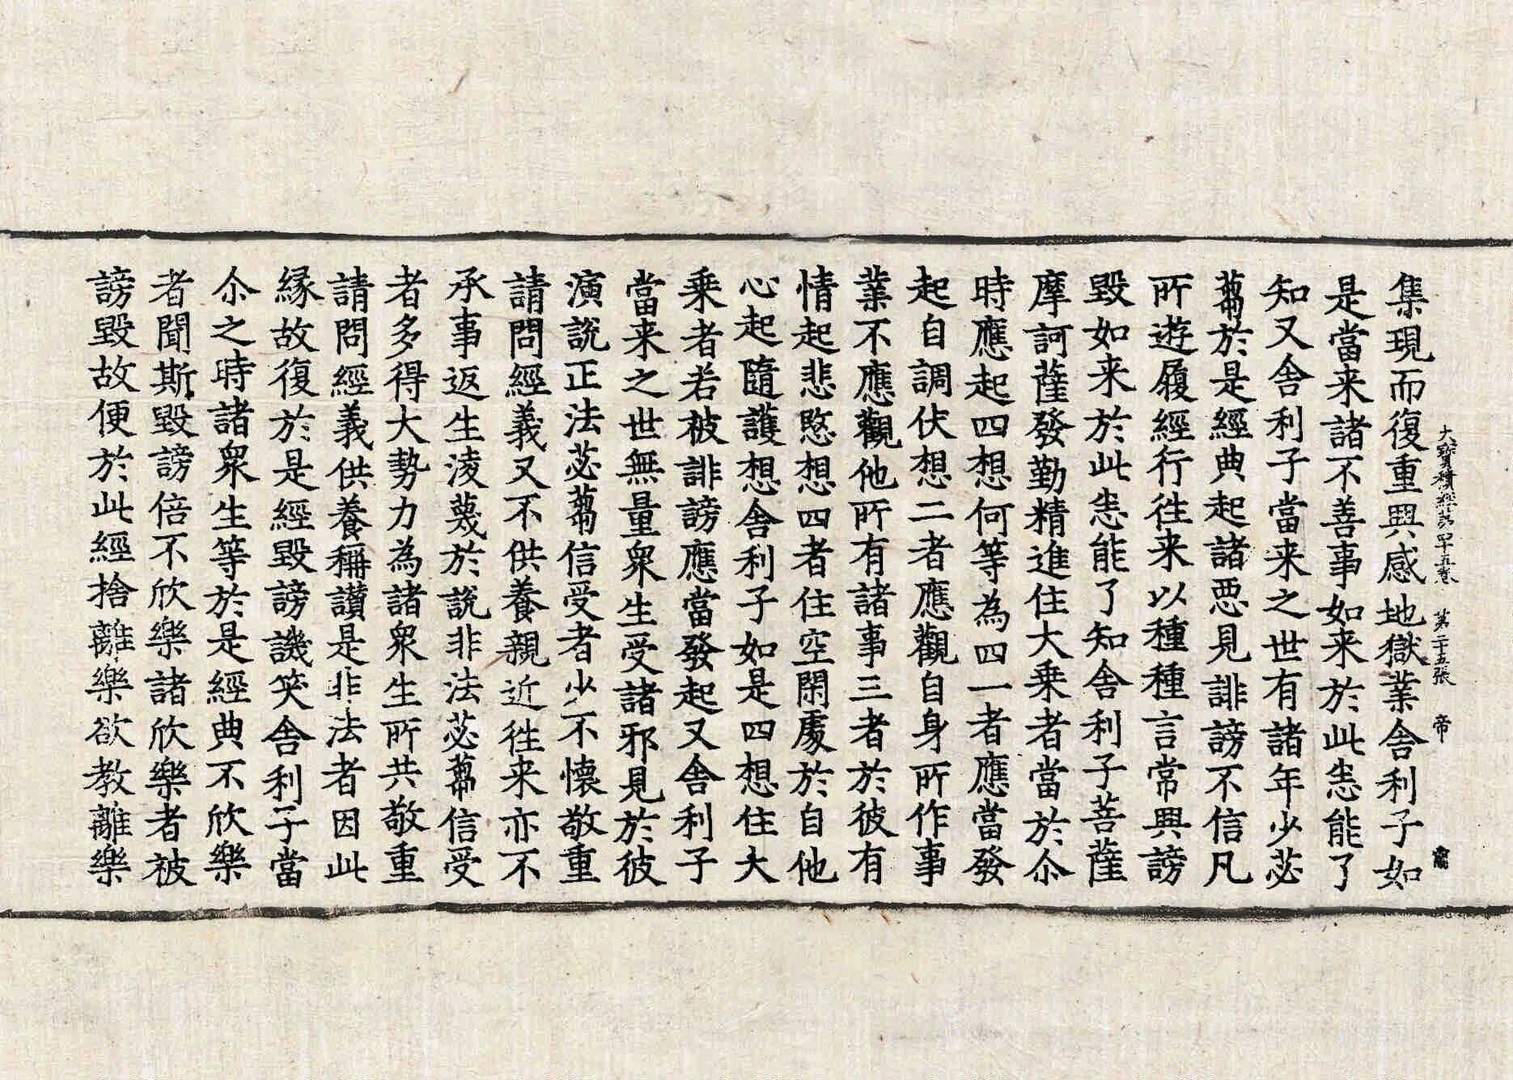 大寳積經第四十五卷 第二十五張 帝
集現而復重興感地獄業舎利子如
是當来諸不善事如来於此悉能了
知又舎利子當来之世有諸年少苾
蒭於是經典起諸惡見誹謗不信凡
所遊履經行往来以種種言常興謗
毀如来於此悉能了知舎利子菩薩
摩訶薩發勤精進住大乗者當於尒
時應起四想何等為四一者應當發
起自調伏想二者應觀自身所作事
業不應觀他所有諸事三者於彼有
情起悲愍想四者住空閑處於自他
心起隨護想舎利子如是四想住大
乗者若被誹謗應當發起又舎利子
當来之世無量衆生受諸邪見於彼
演說正法苾蒭信受者少不懷敬重
請問經義又不供養親近往来亦不
承事返生淩蔑於說非法苾蒭信受
者多得大勢力為諸衆生所共敬重
請問經義供養稱讚是非法者因此
縁故復於是經毀謗譏笑舎利子當
尒之時諸衆生等於是經典不欣樂
者聞斯毀謗倍不欣樂諸欣樂者被
謗毀故便於此經捨離樂欲教離樂